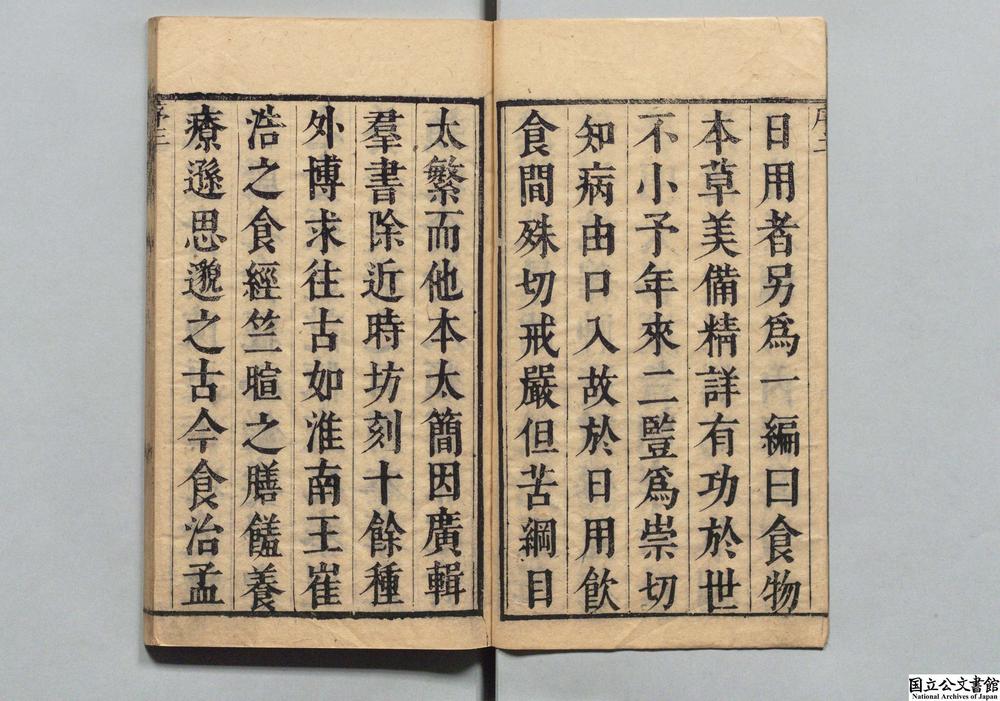 日用者另爲一編曰食物
本草美備精詳有功於世
不小予年來二豎爲祟切
知病由口入故於日用飲
食間殊切戒嚴但苦綱目
太繁而他本太簡因廣輯
羣書除近時坊刻十餘種
外博求往古如淮南王崔
浩之食經竺暄之膳饈養
療遜思邈之古今食治孟
序三
国立公文書館
National Archives of Japan